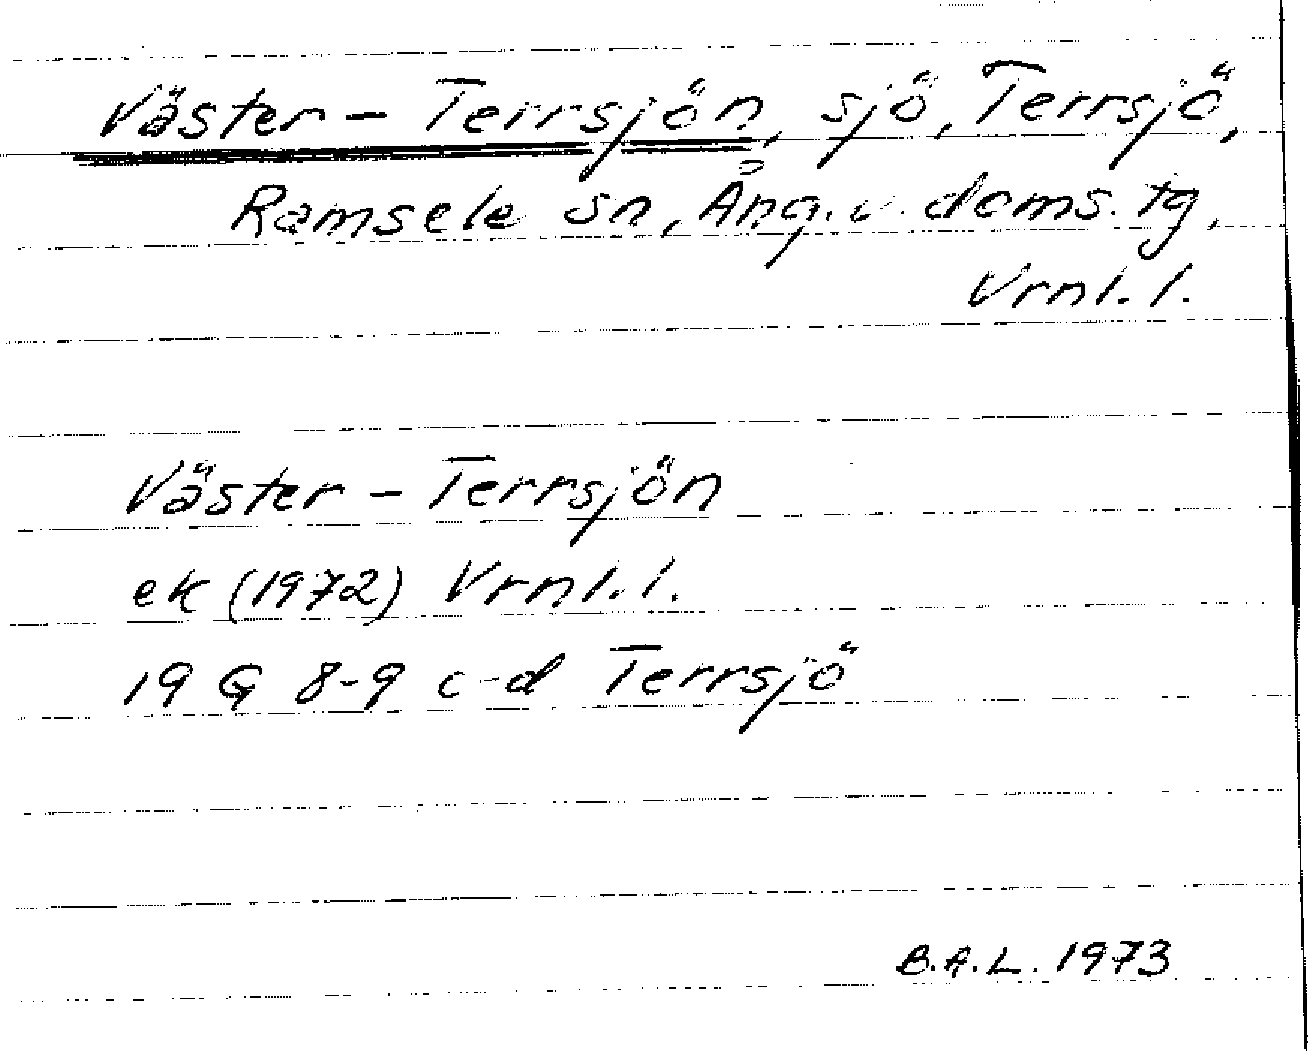 Väster-Terrsjön, sjö, Terrsjö,
Ramsele sn, Ång. v. doms. tg,
Vrnl. l.
Väster-Terrsjön
ek (1972) Vrnl. l.
19 G 8-9 c-d Terrsjö
B.A.L. 1973